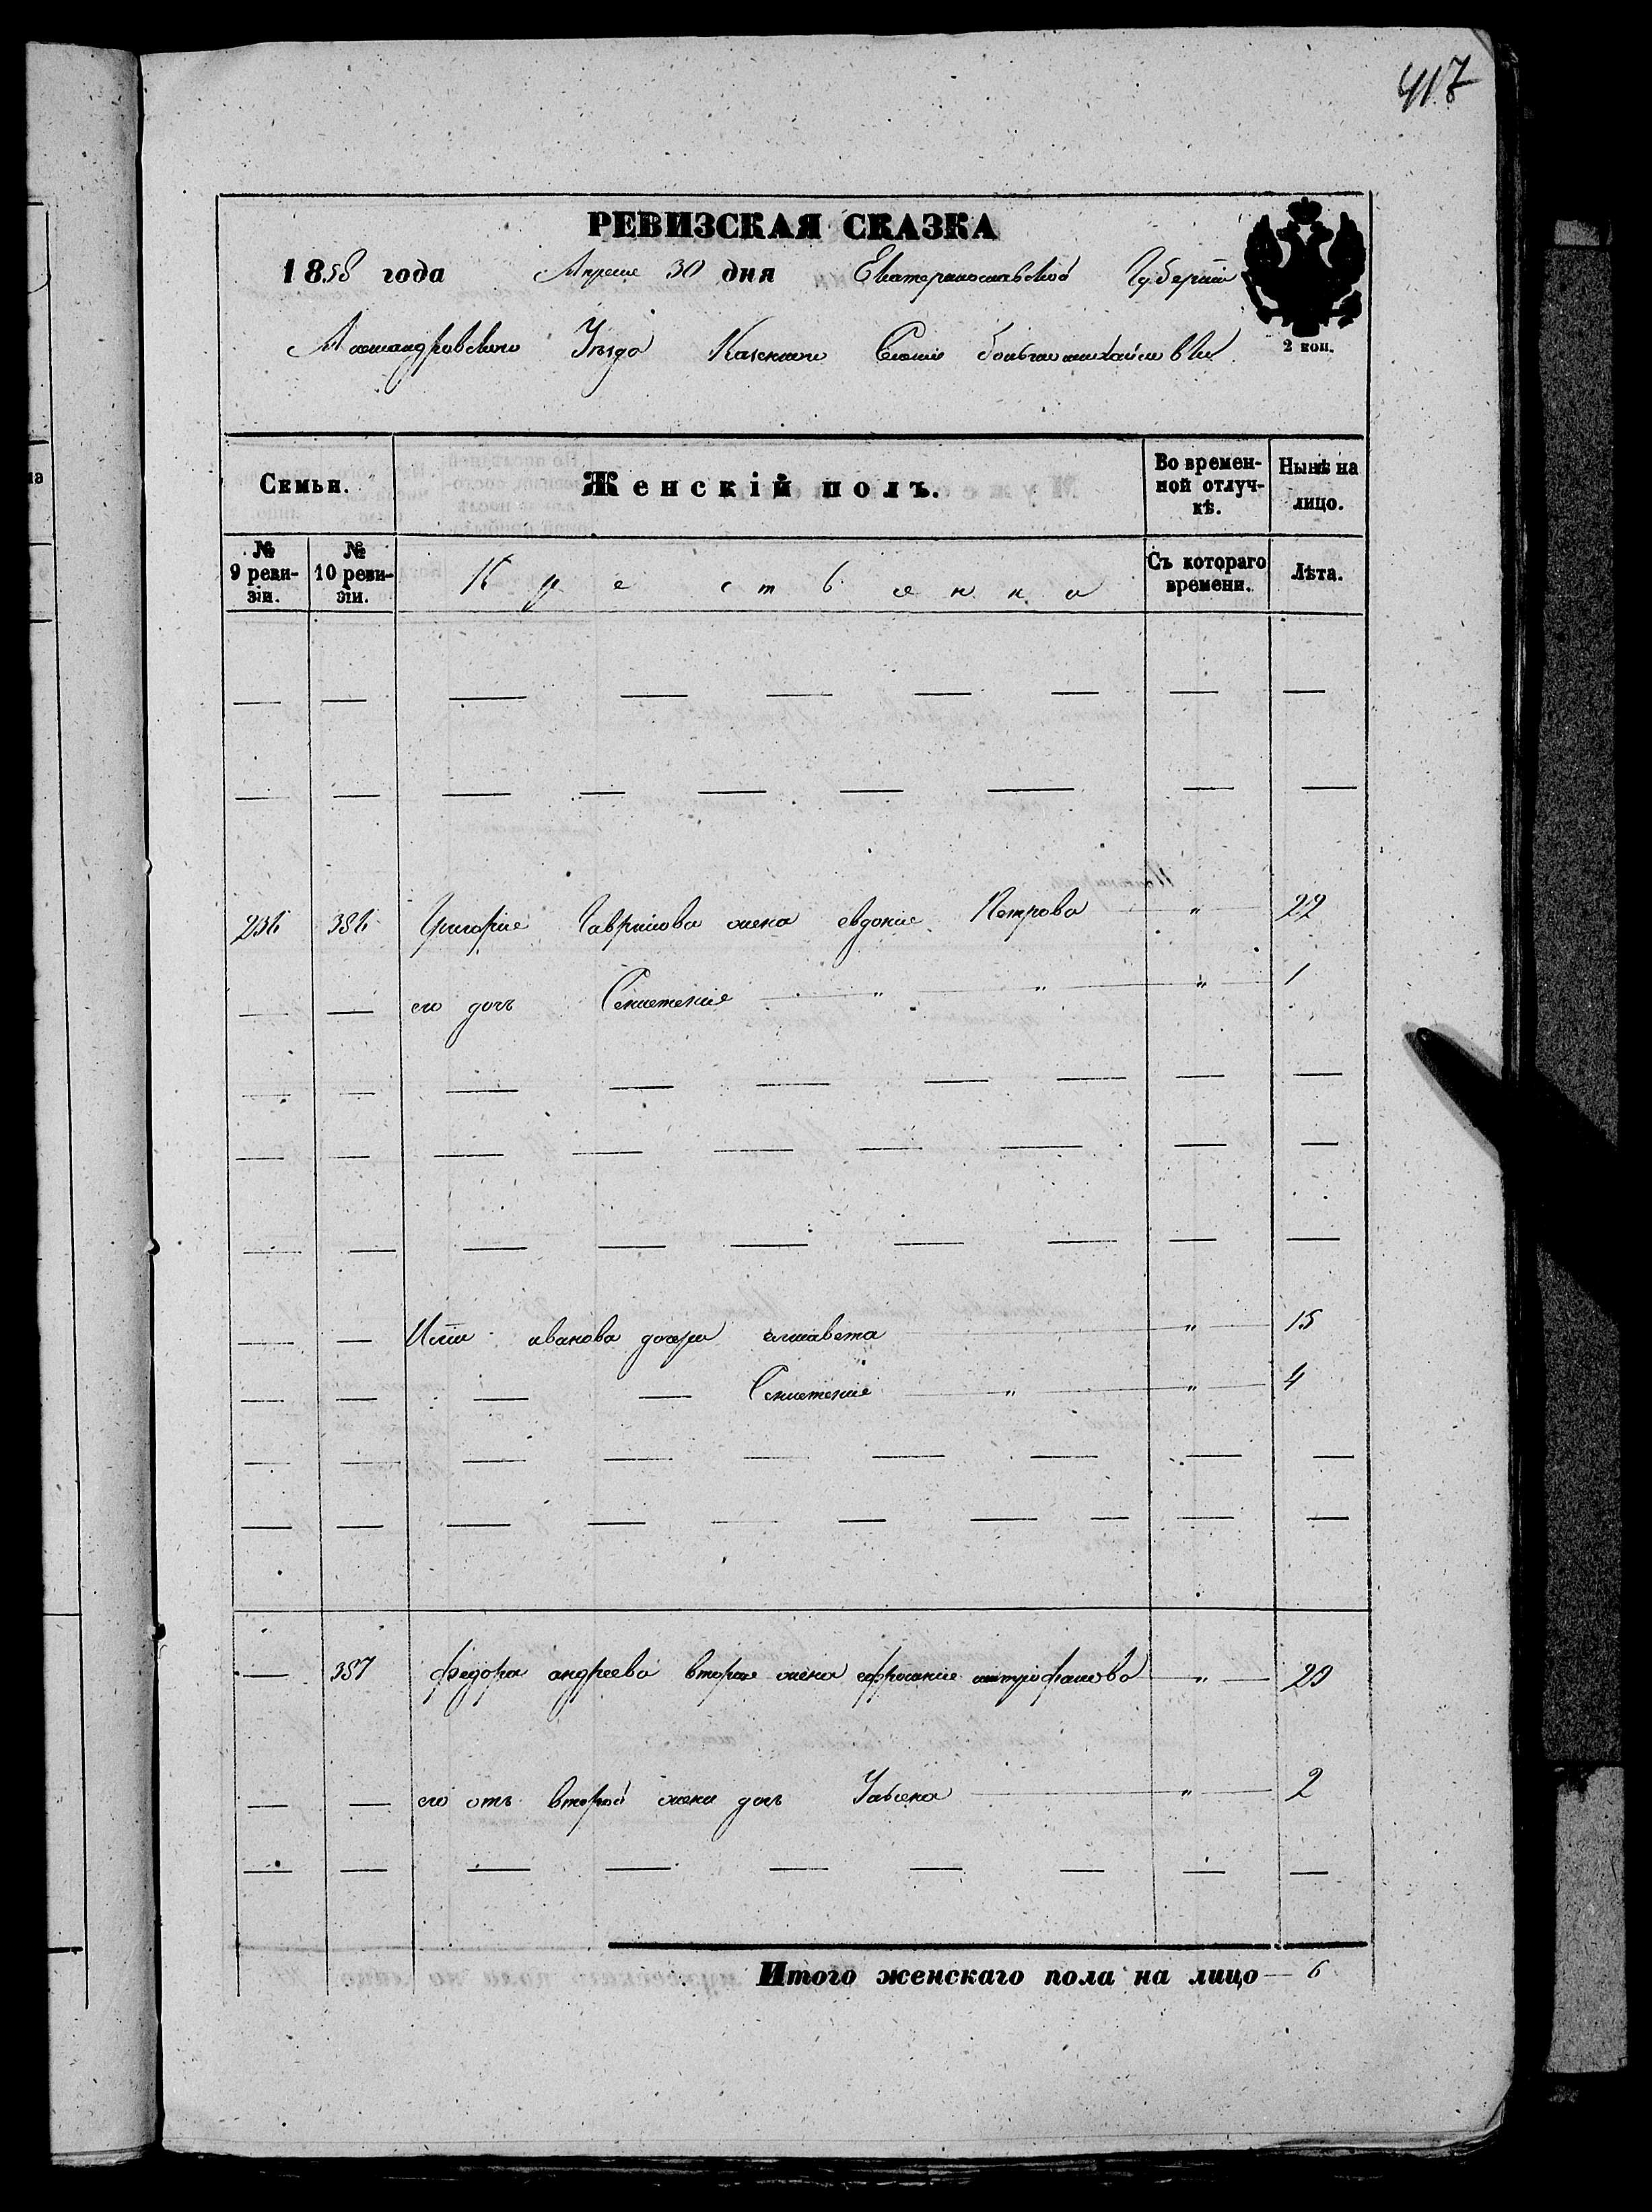 417
РЕВИЗСКАЯ СКАЗКА
1858 года Апреле 30 дня Екатеринославской Губернии
Александровского Уезда Казенного Селение большемихайловки
2 коп.
Семьи. Женскій полъ. Во времен-ной отлуч-кѣ. Нынѣ на лицо.
№ 9 реви-зіи. № 10 реви-зіи. Съ котораго времени. Лѣта.
236 386 Григорие Гаврилова жена евдокие Петрова " 22
его дочь " " " 1
иванова дочери елисавета " 15
" " 4
387 федора андреева вторая жена ефросиние митрофанова " 20
его отъ второй жени дочь " 2
Итого женскаго пола на лицо 6